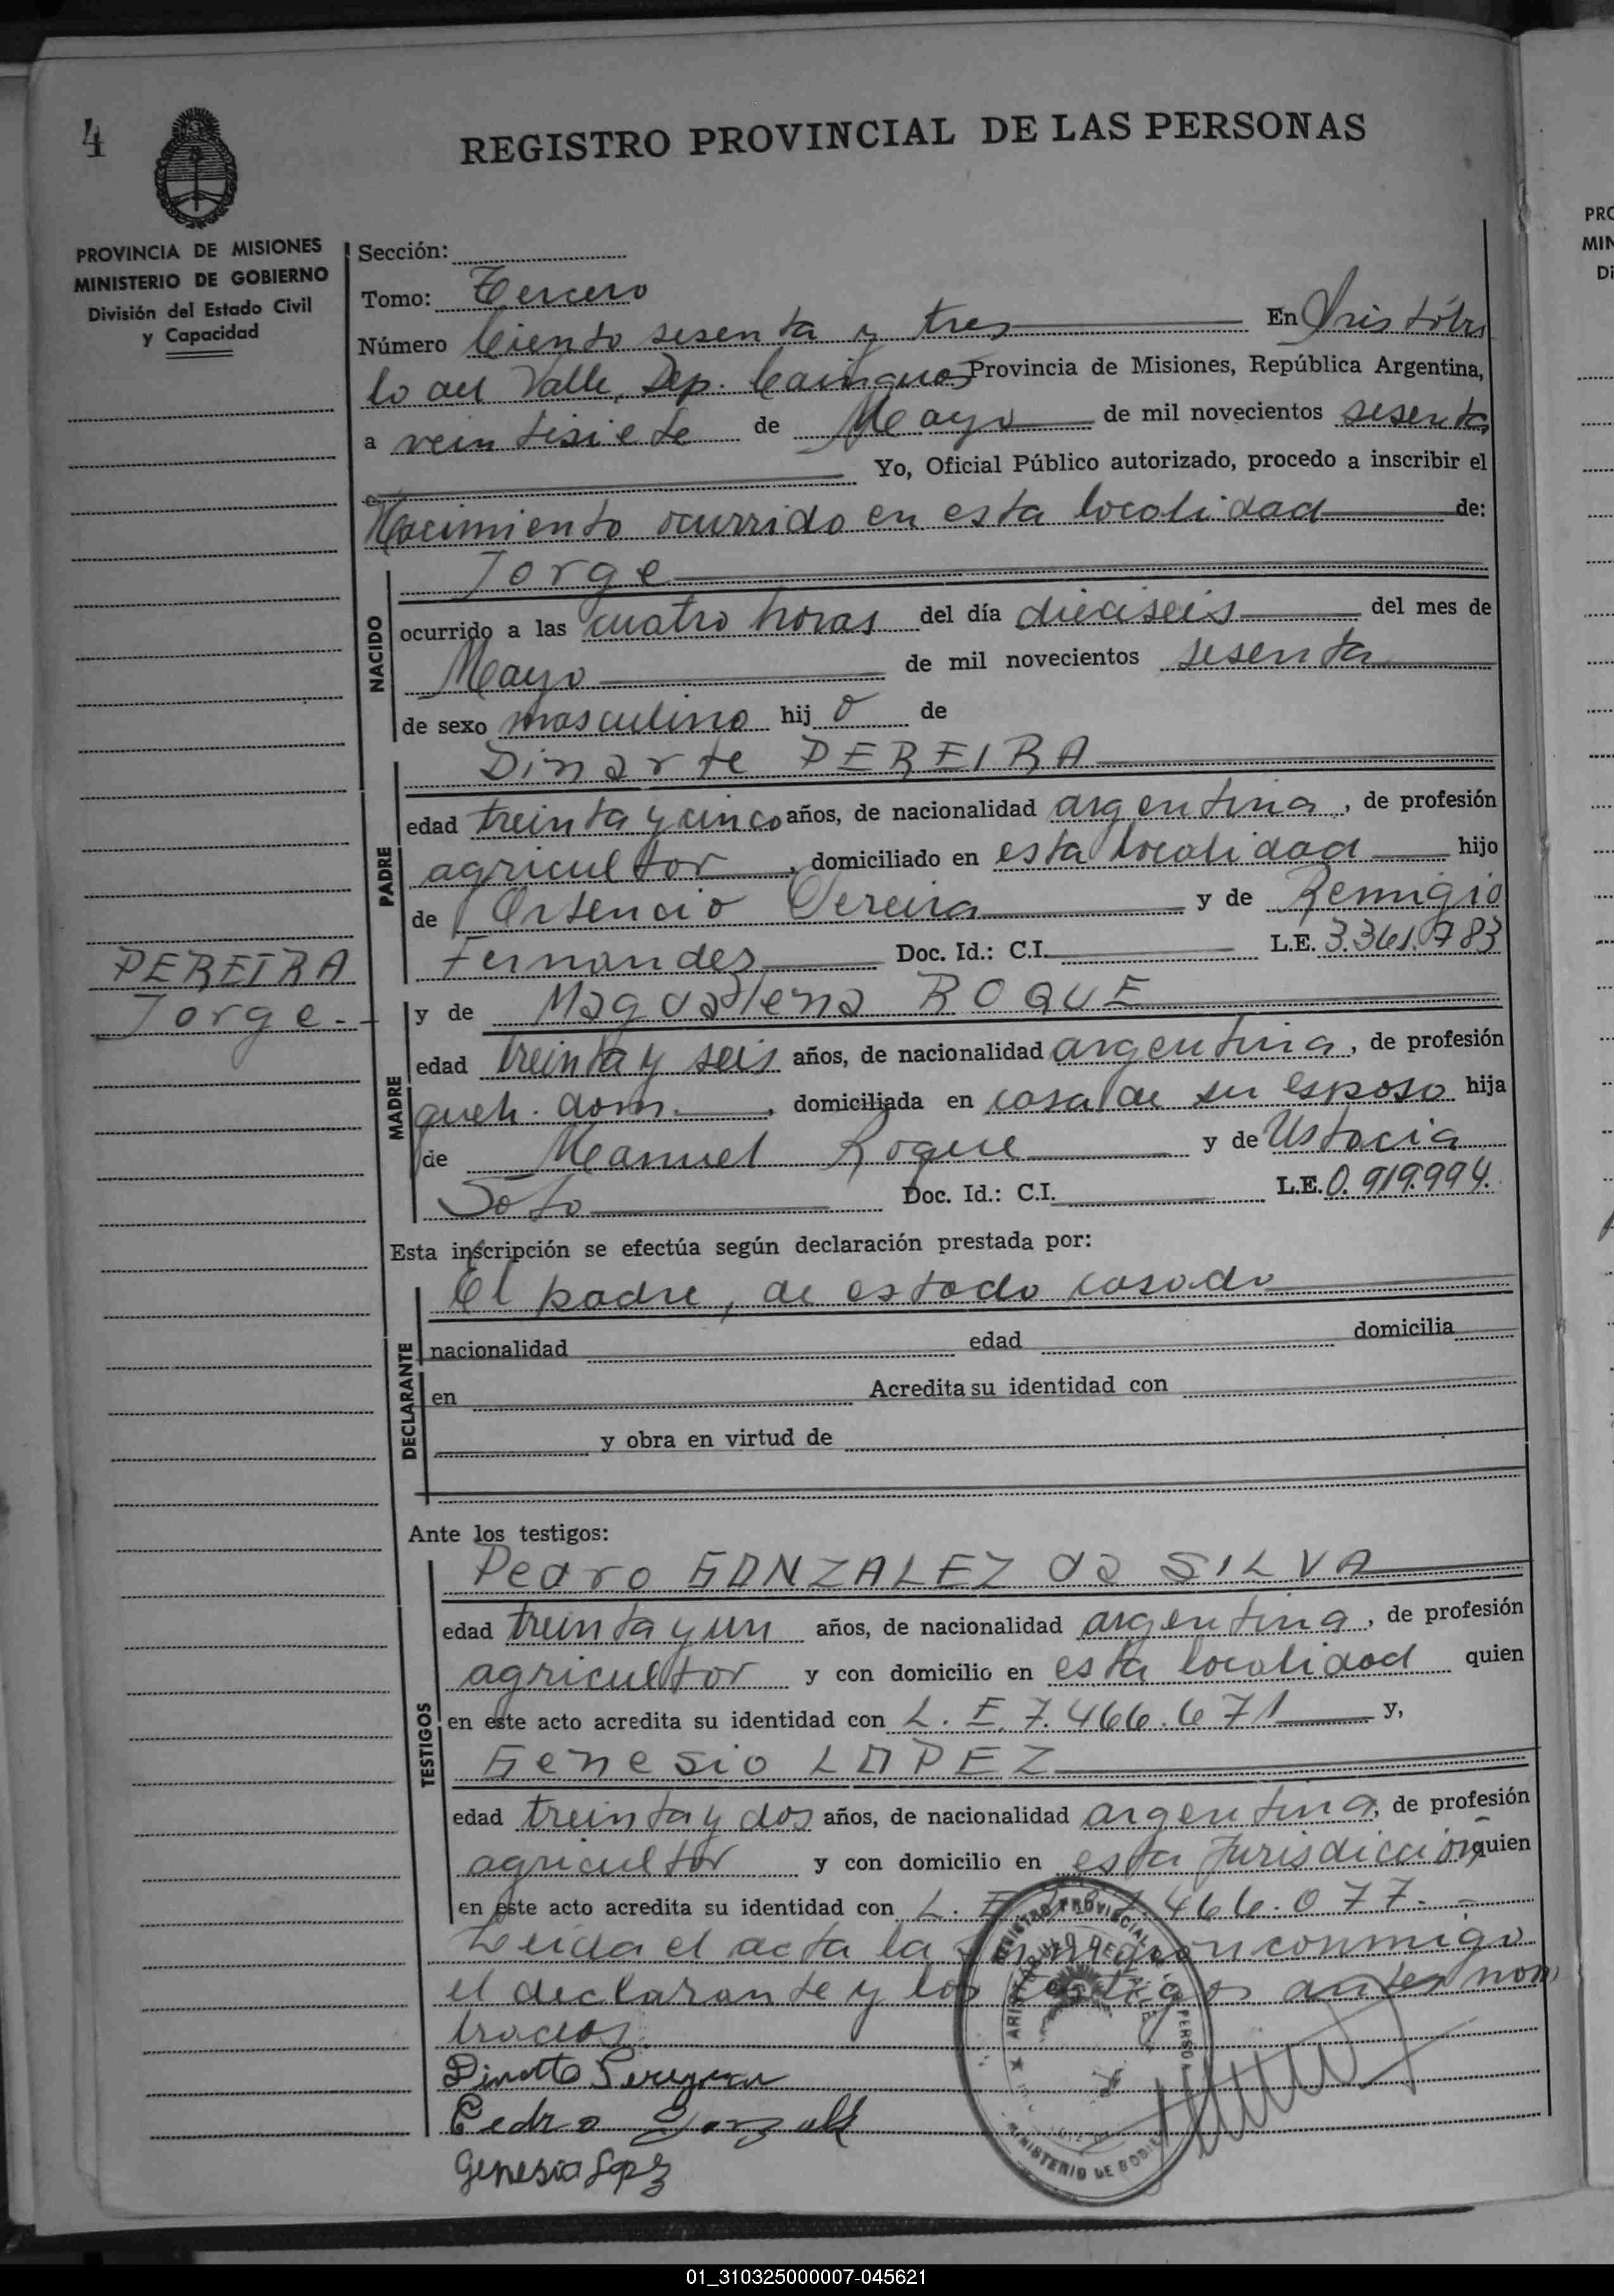 4
REGISTRO PROVINCIAL DE LAS PERSONAS
PROVINCIA DE MISIONES
MINISTERIO DE GOBIERNO
División del Estado Civil
y Capacidad
Sección:
Tomo: Tercero
Número Ciento sesenta y tres En Aristóbu
lo del Valle, Dep. Cainguas Provincia de Misiones, República Argentina,
a veintisiete de Mayo de mil novecientos sesenta
Yo, Oficial Público autorizado, procedo a inscribir el
Nacimiento ocurrido en esta localidad de:
NACIDO
Jorge
ocurrido a las cuatro horas del día dieciseis del mes de
Mayo de mil novecientos sesenta
de sexo masculino hij o de
PADRE
Dinarte PEREIRA
edad treinta y cinco años, de nacionalidad argentina, de profesión
agricultor, domiciliado en esta localidad hijo
de Ortencio Pereira y de Remigio
Fernandes Doc. Id.: C.I. L.E. 3.361.783
PEREIRA
Jorge.-
MADRE
y de Magdalena ROQUE
edad treinta y seis años, de nacionalidad argentina, de profesión
queh. dom., domiciliada en casa de su esposo hija
de Manuel Roque y de Ustacia
Soto Doc. Id.: C.I. L.E. 0.919.994.
Esta inscripción se efectúa según declaración prestada por:
DECLARANTE
El padre, de estado casado
nacionalidad edad domicilia
en Acredita su identidad con
y obra en virtud de
Ante los testigos:
TESTIGOS
Pedro GONZALEZ da SILVA
edad treinta y un años, de nacionalidad argentina, de profesión
agricultor y con domicilio en esta localidad quien
en este acto acredita su identidad con L. E. 7.466.671 y,
Genesio LOPEZ
edad treinta y dos años, de nacionalidad argentina, de profesión
agricultor y con domicilio en esta Jurisdicción quien
en este acto acredita su identidad con L. E. 7.466.077.-
Leida el acta la firmaron conmigo
el declarante y los testigos antes nom
brados.
Pedro Gonzalez
Genesio Lopez
MINISTERIO DE GOBIERNO
01_310325000007-045621